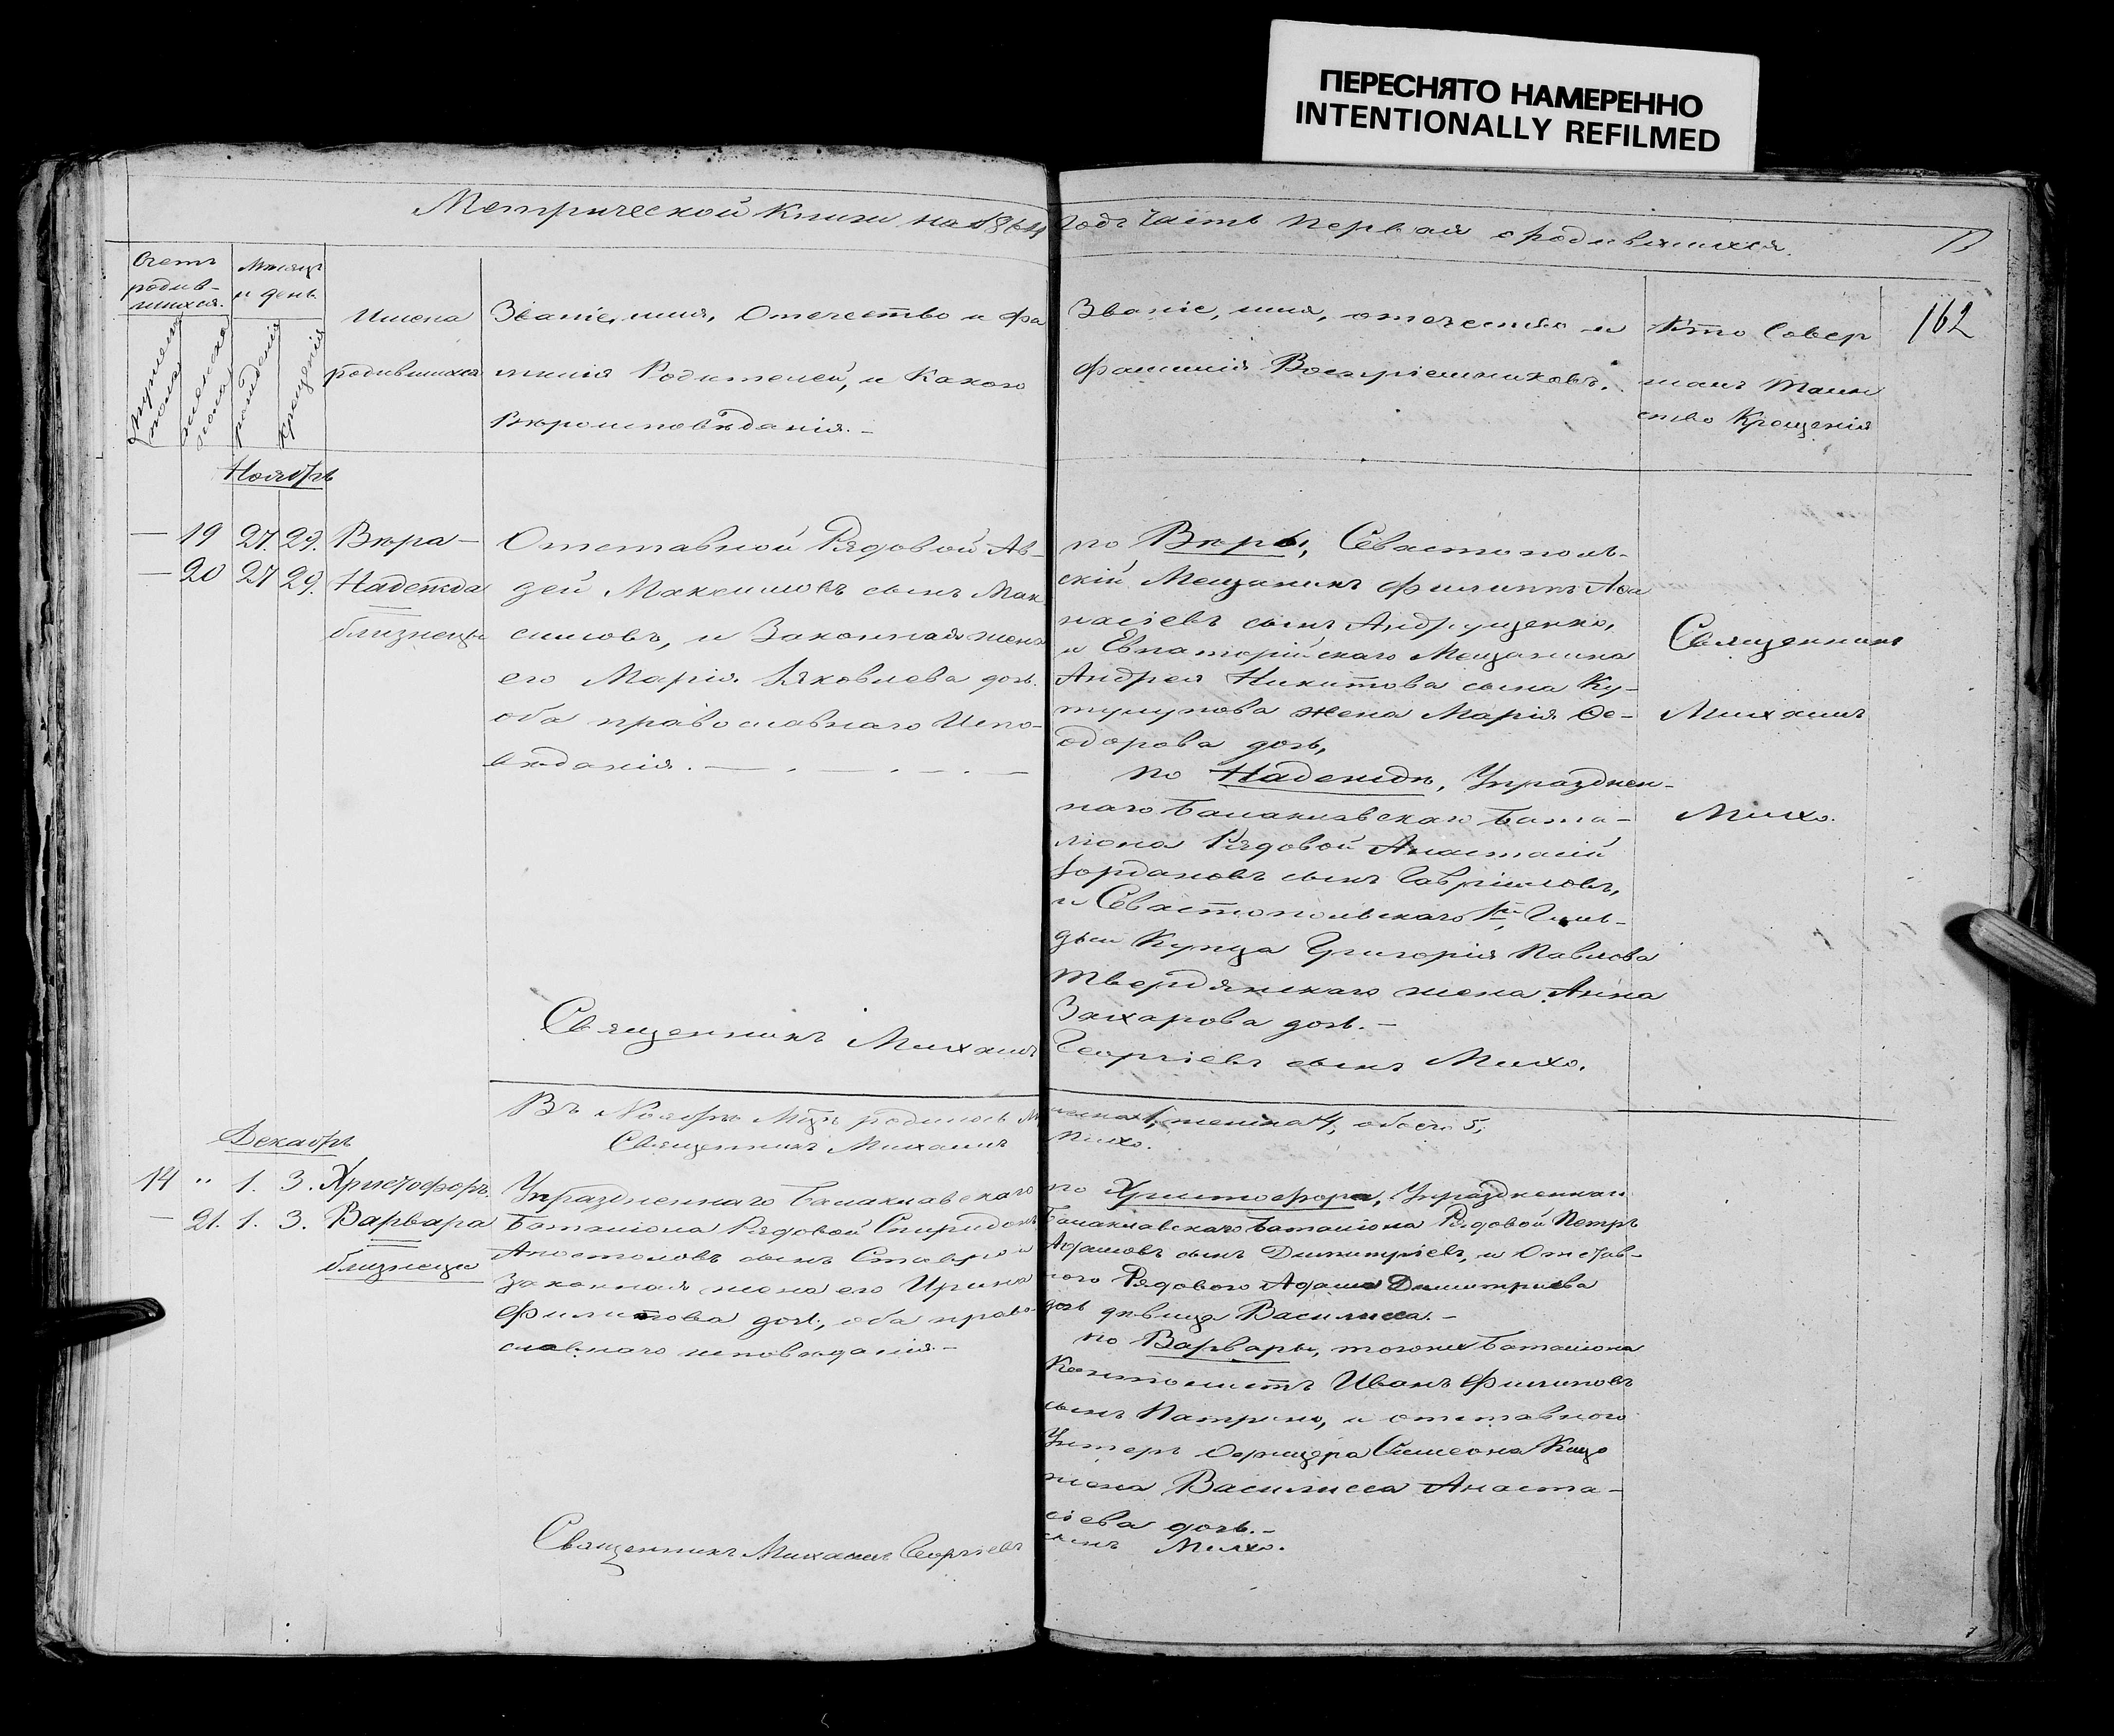 ПЕРЕСНЯТО НАМЕРЕННО
INTENTIONALLY REFILMED
Метрической Книги на 1864 Годъ Часть Первая о родившихся.
162
Счетъ родив-шихся.
Мужеска пола
женска пола
Мѣсяцъ и день
рожденія
крещенія
Имена
родившихся
Званіе, имя, Отечество и фа
милія Родителей, и Какого
Вѣроисповѣданія.-
Званіе, имя, отечество и
фамилія Воспріемниковъ.
Кто Совер
шалъ Таин
ство Крещенія
Ноябрь
— 19 27. 29. Вѣра —
— 20 27 29. Надежда
близнецы
Отставной Рядовой Ав-
дей Максимовъ сынъ Мак
симовъ, и Законная жена
его Марія Яковлева дочь.
оба православнаго Испо-
вѣданія.
по Вѣры, Севастополь-
скій Мещанинъ Филиппъ Афа
насіевъ сынъ Андрущенко,
и Евпаторійскаго Мещанина
Андрея Никитова сына Ку-
тулупова жена Марія Ѳе-
одорова дочь,
по Надеждѣ, Упразднен-
наго Балаклавскаго Бата-
ліона Рядовой Анастасій
Іордановъ сынъ Гавріиловъ,
и Севастопольскаго 1й Гиль-
діи Купца Григорія Павлова
Твердянскаго жена Анна
Захарова дочь.-
Священникъ
Михаилъ
Михо.
Священникъ Михаилъ Георгіевъ сынъ Михо.
Въ Ноябрѣ Мцѣ родилось мужеска 1, женска 4, обоего 5,
Священникъ Михаилъ Михо.
Декабрь
14 " 1. 3. Христофоръ.
— 21. 1. 3. Варвара
близнецы
Упраздненнаго Балаклавскаго
Баталіона Рядовой Спиридонъ
Апостоловъ сынъ Ставро и
Законная жена его Ирина
Филипова дочь, оба право-
славнаго исповѣданія.-
по Христофора, Упраздненнаго
Балаклавскаго Баталіона Рядовой Петръ
Адамовъ сынъ Димитріевъ, и Отстав-
ного Рядового Адама Димитриева
дочь дѣвица Василисса.-
по Варвары, тогоже Баталіона
Кантонистъ Иванъ Филиповъ
сынъ Патрино, и отставного
Унтеръ Офицера Симеона Кицо
жена Василисса Анаста-
сіева дочь.-
Священникъ Михаилъ Георгіевъ сынъ Михо.